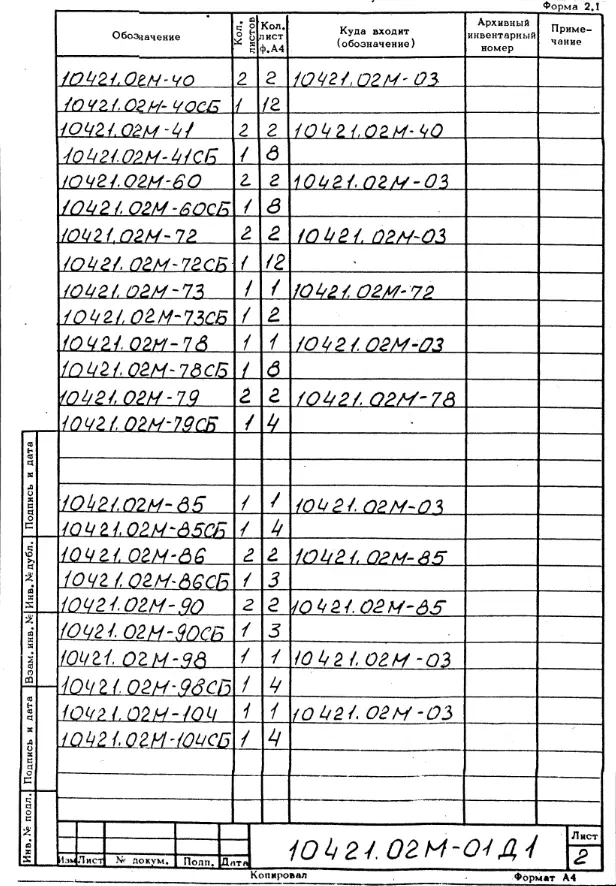 Форма 2.1
Обозначение Кол. листов Кол. лист ф.А4 Куда входит (обозначение) Архивный инвентарный номер Примечание
10421.02М-40 2 2 10421.02М-03
10421.02М-40СБ 1 12
10421.02М-41 2 2 10421.02М-40
10421.02М-41СБ 1 8
10421.02М-60 2 2 10421.02М-03
10421.02М-60СБ 1 8
10421.02М-72 2 2 10421.02М-03
10421.02М-72СБ 1 12
10421.02М-73 1 1 10421.02М-72
10421.02М-73СБ 1 2
10421.02М-78 1 1 10421.02М-03
10421.02М-78СБ 1 8
10421.02М-79 2 2 10421.02М-78
10421.02М-79СБ 1 4
10421.02М-85 1 1 10421.02М-03
10421.02М-85СБ 1 4
10421.02М-86 2 2 10421.02М-85
10421.02М-86СБ 1 3
10421.02М-90 2 2 10421.02М-85
10421.02М-90СБ 1 3
10421.02М-98 1 1 10421.02М-03
10421.02М-98СБ 1 4
10421.02М-104 1 1 10421.02М-03
10421.02М-104СБ 1 4
Подпись и дата
Инв. № дубл.
Взам. инв. №
Подпись и дата
Инв. № подл.
Изм Лист № докум. Подп. Дата
10421.02М-01Д1
Лист
2
Копировал Формат А4